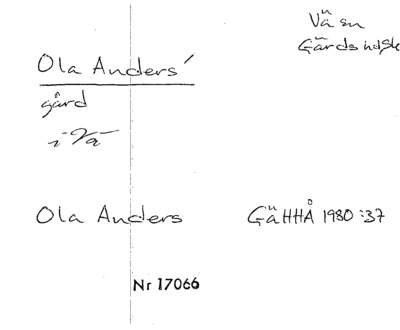 Vä sn
Gärds hd Sk
Ola Anders'
gård
i Vä
Ola Anders GäHHÅ 1980:37
Nr 17066